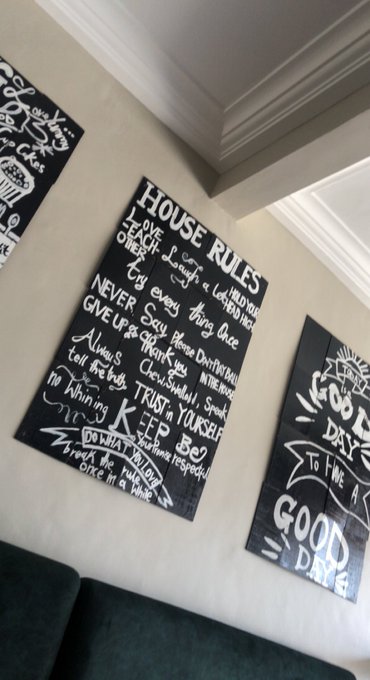 Cakes
HOUSE RULES
LOVE
-EACH-
OTHER
Laugh a lot
HOLD YOUR
HEAD HIGH
try every thing Once
NEVER
GIVE UP
Say Please &
thank you
Don't PLAY BALL
IN THE HOUSE
Always
tell the truth
Chew, Swallow! Speak
no whining
TRUST in YOURSELF
KEEP
Your Promise
BE
respectful
DO WHAT YOU LOVE
break the rules
once in a while
TODAY
GOOD
DAY
TO HAVE A
GOOD
DAY